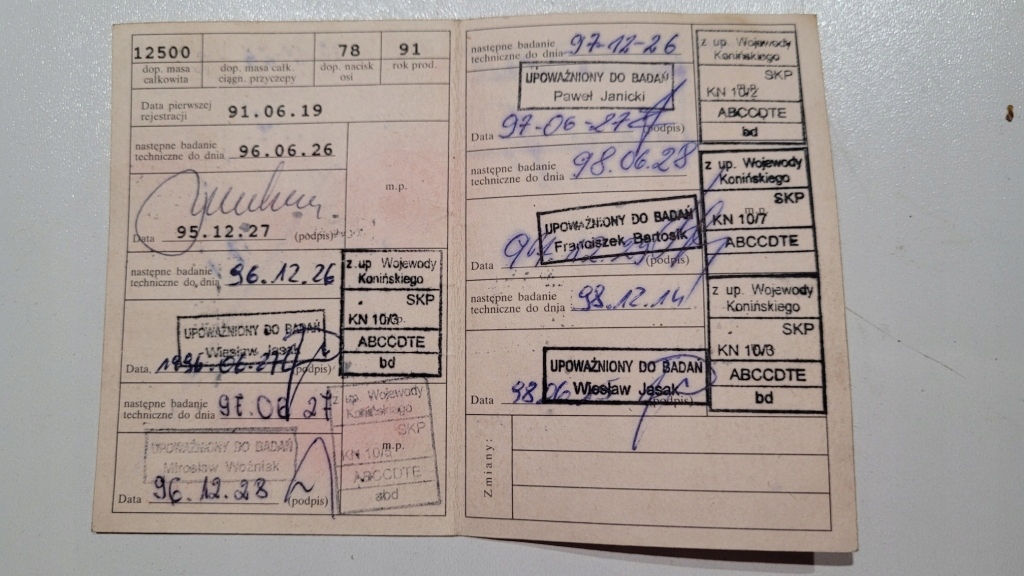 12500 78 91
dop. masa całkowita
dop. masa całk. ciągn. przyczepy
dop. nacisk osi
rok prod.
Data pierwszej rejestracji 91.06.19
następne badanie techniczne do dnia 96.06.26
m.p.
Data 95.12.27 (podpis)
następne badanie techniczne do dnia 96.12.26
z up. Wojewody
Konińskiego
SKP
KN 10/3
ABCCDTE
bd
UPOWAŻNIONY DO BADAŃ
Wiesław Jasak
Data 1996.06.27 (podpis)
następne badanie techniczne do dnia 97.06 27
z up. Wojewody
Konińskiego
SKP
m.p.
KN 10/
ABCCDTE
abd
UPOWAŻNIONY DO BADAŃ
Mirosław Woźniak
Data 96.12.28 (podpis)
następne badanie techniczne do dnia 97-12-26
z up. Wojewody
Konińskiego
SKP
KN 10/2
ABCCDTE
bd
UPOWAŻNIONY DO BADAŃ
Paweł Janicki
Data 97-06-27 (podpis)
następne badanie techniczne do dnia 98.06.28
z up. Wojewody
Konińskiego
SKP
KN 10/7
ABCCDTE
UPOWAŻNIONY DO BADAŃ
Franciszek Bartosik
Data (podpis)
następne badanie techniczne do dnia 98.12.14
z up. Wojewody
Konińskiego
SKP
KN 10/3
ABCCDTE
bd
UPOWAŻNIONY DO BADAŃ
Wiesław Jasak
Data 98.06 (podpis)
Zmiany: